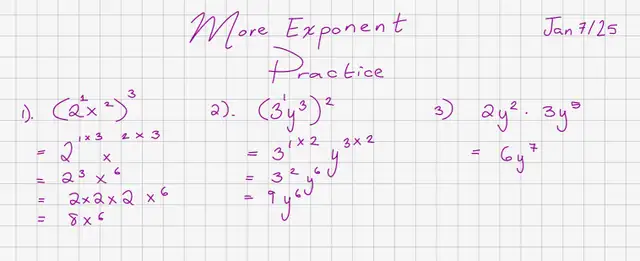 More Exponent
Practice
Jan 7/25
1). (2¹x²)³
= 2¹ˣ³ x²ˣ³
= 2³ x⁶
= 2x2x2 x⁶
= 8x⁶
2). (3¹y³)²
= 3¹ˣ² y³ˣ²
= 3² y⁶
= 9y⁶
3) 2y² · 3y⁵
= 6y⁷